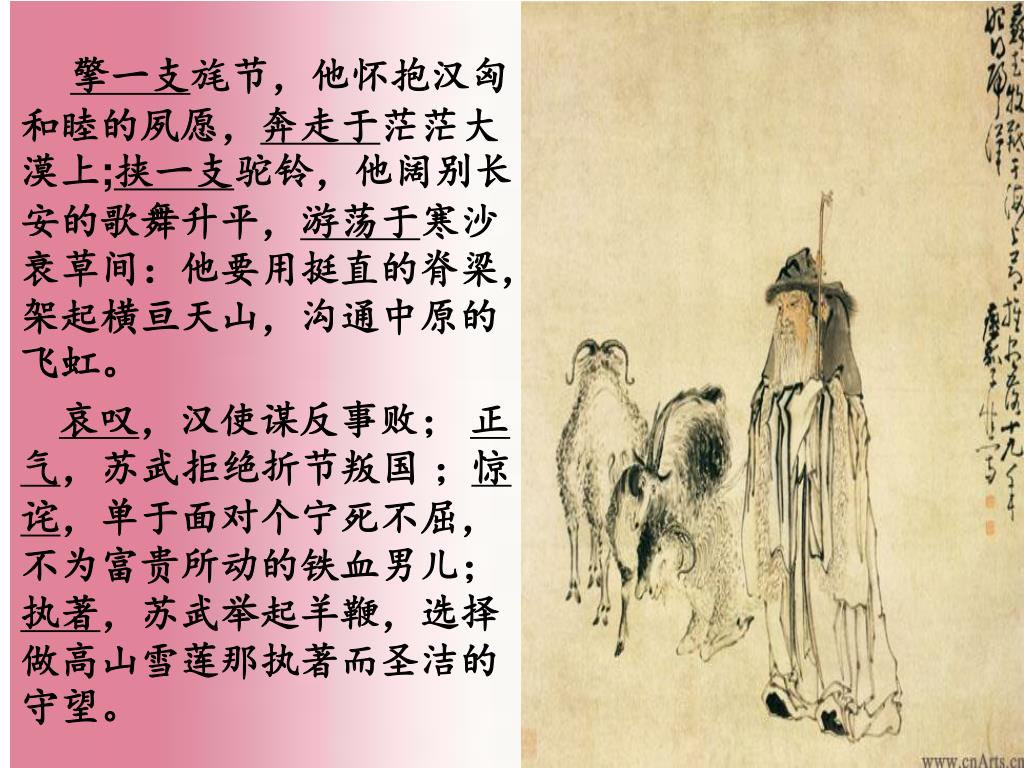 擎一支旄节，他怀抱汉匈
和睦的夙愿，奔走于茫茫大
漠上;挟一支驼铃，他阔别长
安的歌舞升平，游荡于寒沙
衰草间：他要用挺直的脊梁，
架起横亘天山，沟通中原的
飞虹。
哀叹，汉使谋反事败； 正
气，苏武拒绝折节叛国 ；惊
诧，单于面对个宁死不屈，
不为富贵所动的铁血男儿；
执著，苏武举起羊鞭，选择
做高山雪莲那执著而圣洁的
守望。
www.cnArts.cn